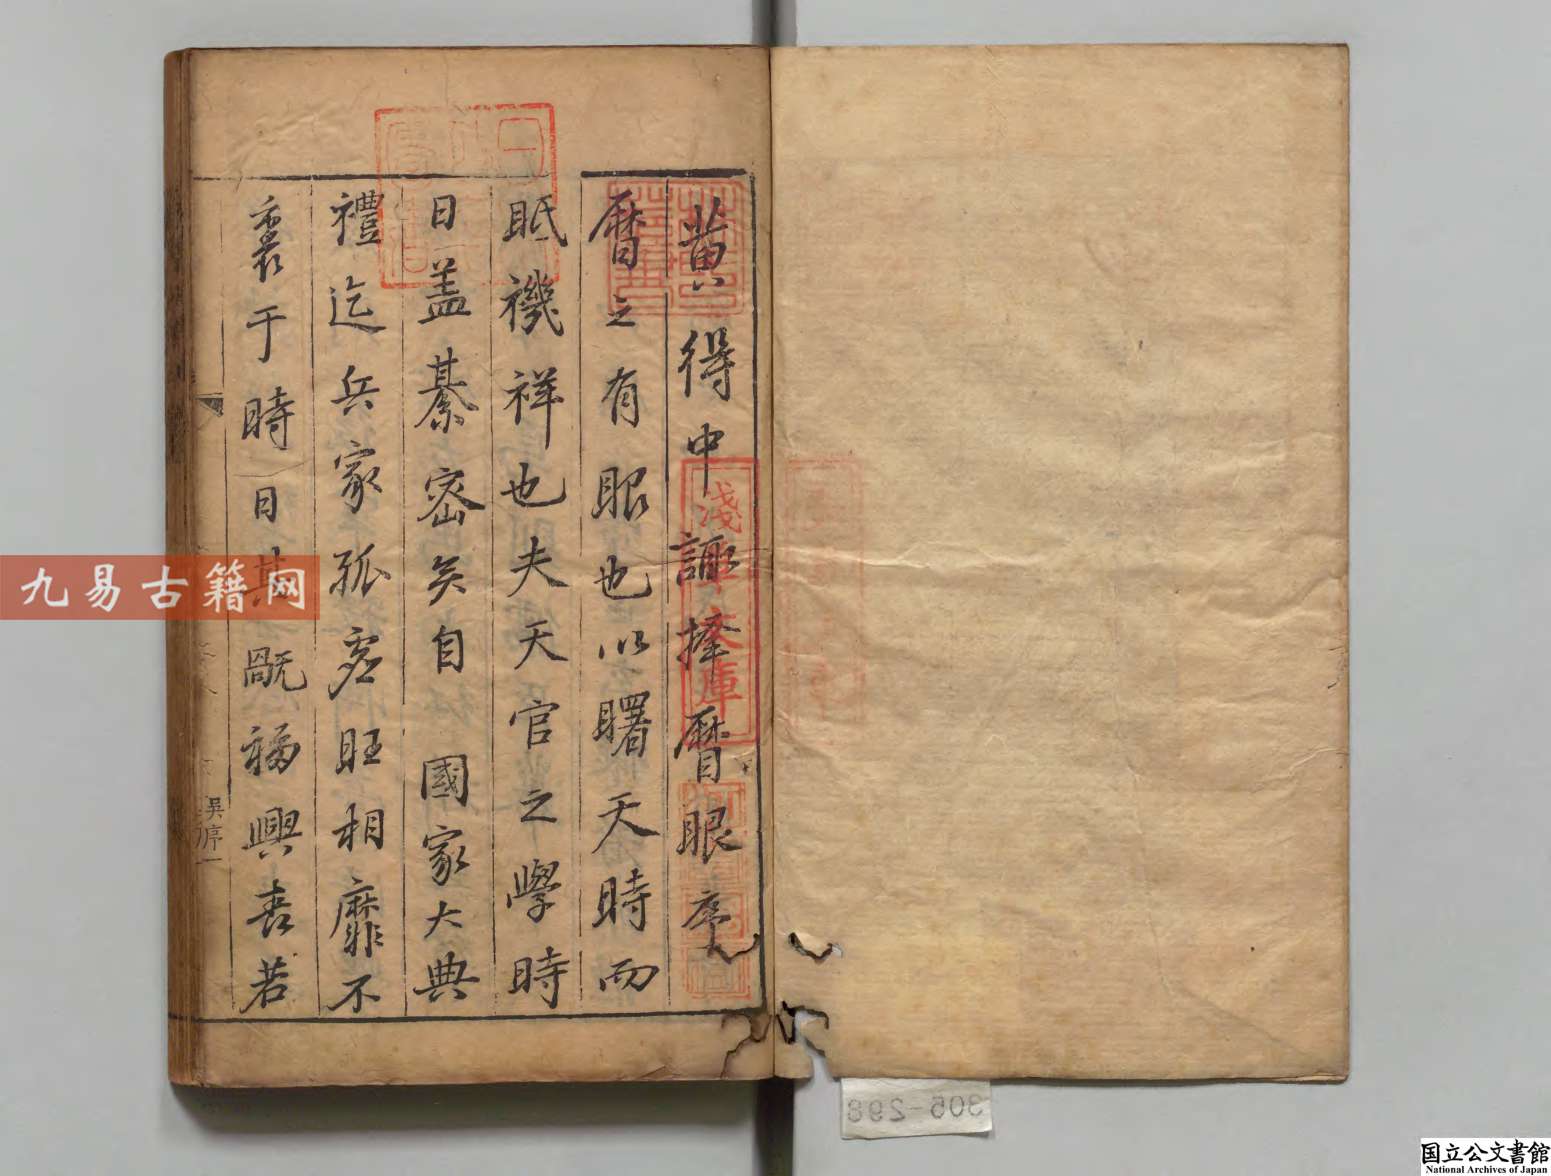 黄得中諏擇曆眼序
曆之有眼也以曙天時而
眡禨祥也夫天官之學時
日盖綦密矣自 國家大典
禮迄兵家孤虚旺相靡不
衷于時日其觀福興丧若
吴序一
淺草文庫
九易古籍网
305-298
国立公文書館
National Archives of Japan